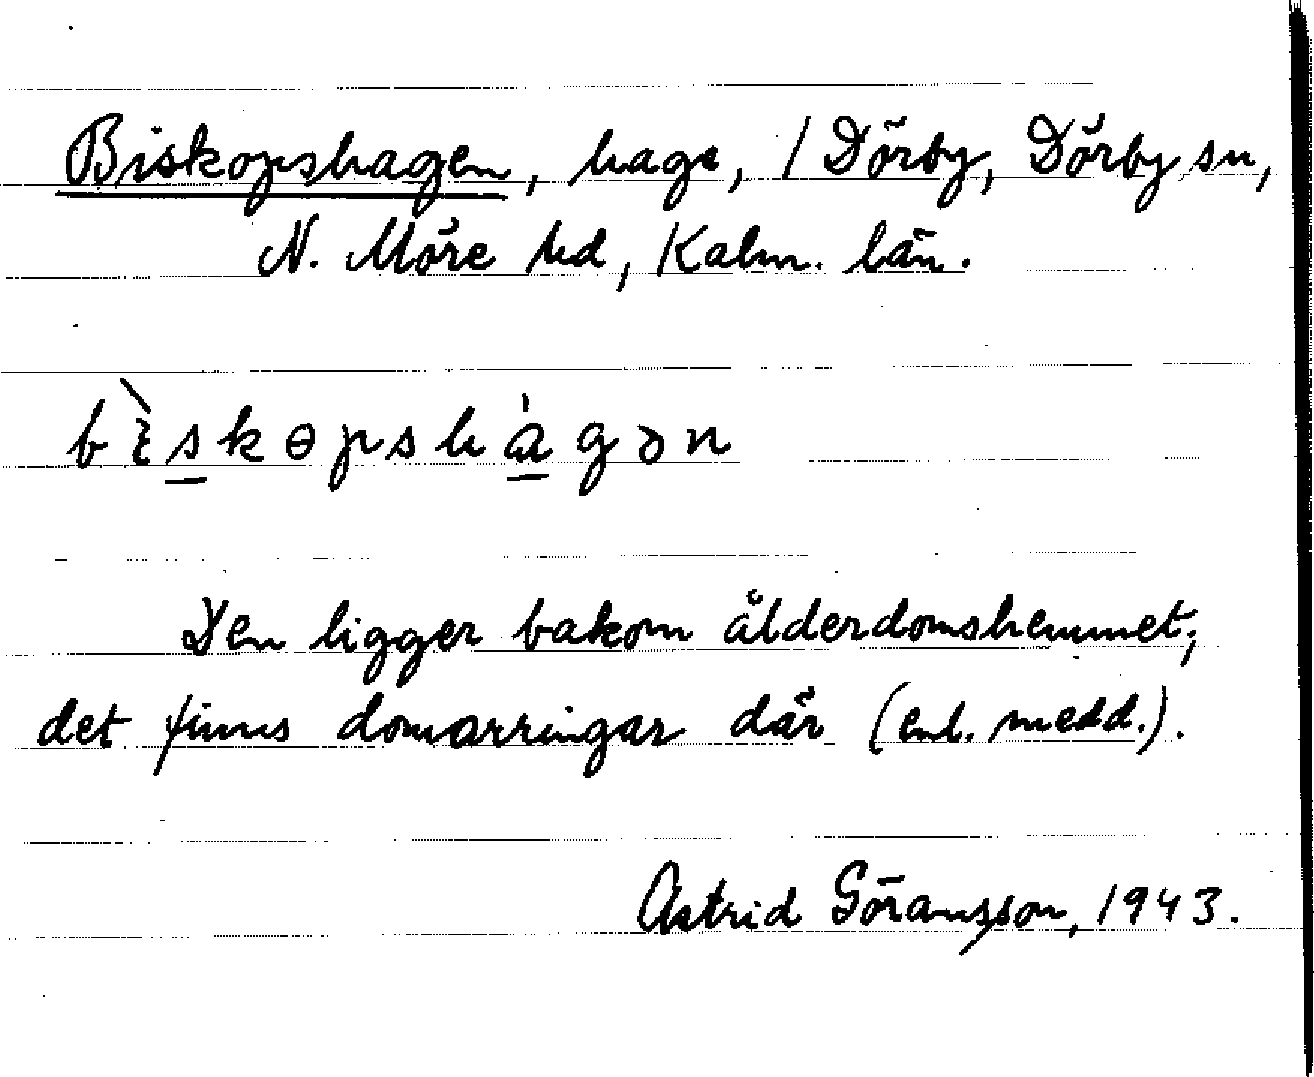 Biskopshagen, hage, / Dörby, Dörby sn,
N. Möre hd, Kalm. län.
bı̀skɵpshágən
Den ligger bakom ålderdomshemmet;
det finns domarringar där (enl. medd.).
Astrid Göransson, 1943.